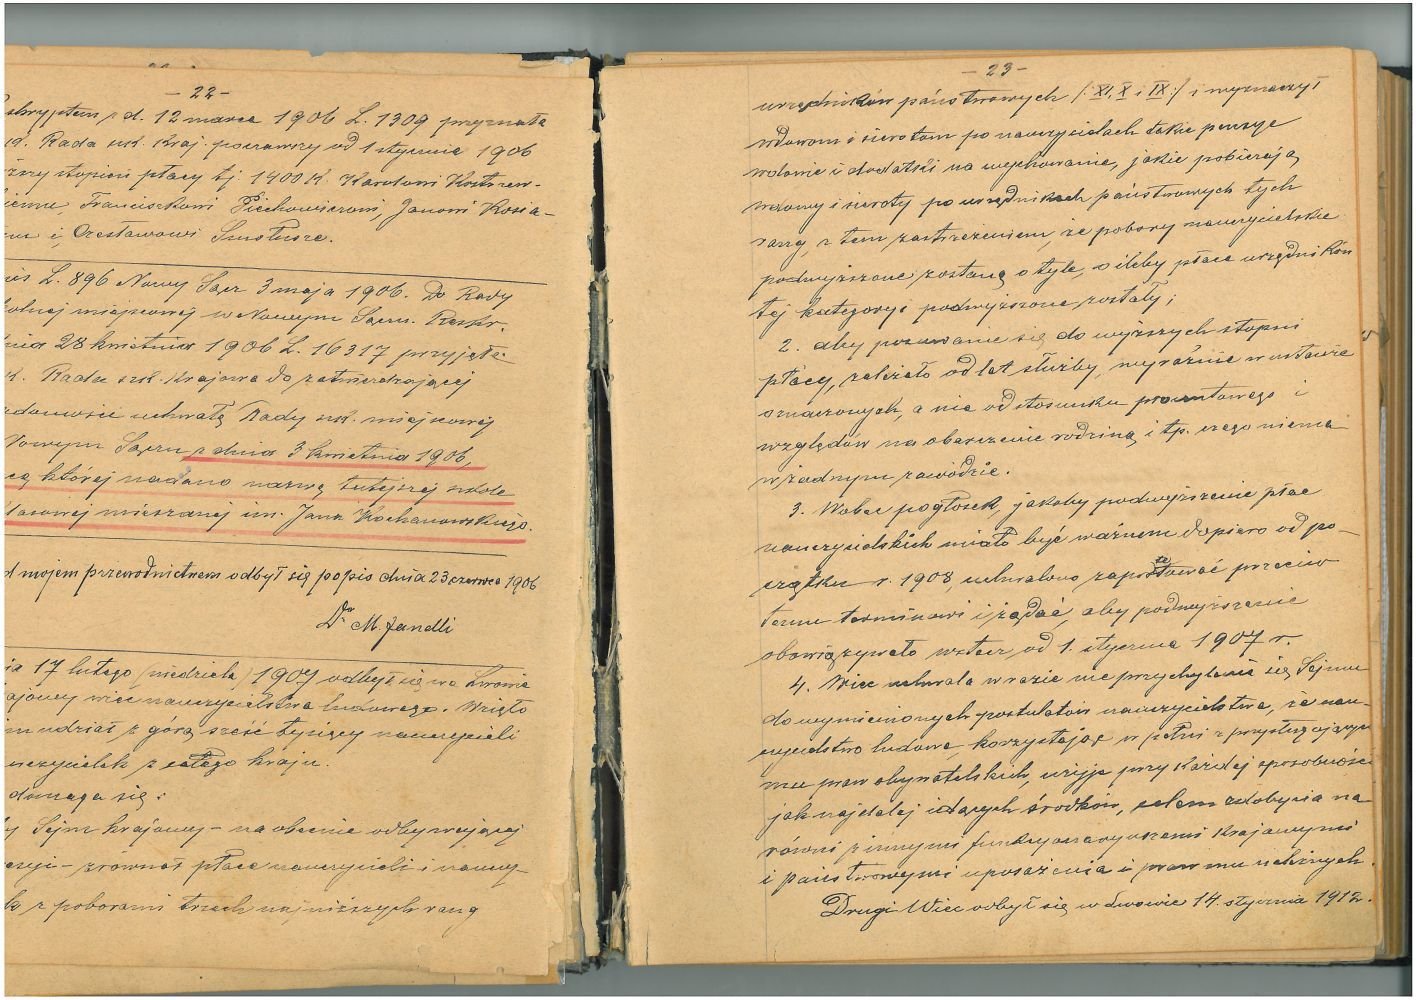 - 22 -
z d. 12 marca 1906 L. 1309 przyznała
Rada szk. kraj. począwszy od 1 stycznia 1906
stopień płacy tj. 1400 K. Karolowi
Franciszkowi Piechowiczowi, Janowi Kosia-
i Czesławowi
L. 896 Nowy Sącz 3 maja 1906. Do Rady
szkolnej miejscowej w Nowym Sączu. Reskr.
dnia 28 kwietnia 1906 L. 16317 przyjęła
k. Rada szk. krajowa do zatwierdzającej
wiadomości uchwałę Rady szk. miejscowej
Nowym Sączu z dnia 3 kwietnia 1906,
cą której nadano nazwę tutejszej szkole
klasowej mieszanej im. Jana Kochanowskiego.
d mojem przewodnictwem odbył się popis dnia 23 czerwca 1906
Dr M. Janelli
nia 17 lutego (niedziela) 1907 odbył się we Lwowie
krajowy wiec nauczycielstwa ludowego. Wzięło
im udział z górą sześć tysięcy nauczycieli
nauczycielek z całego kraju.
domaga się:
by Sejm krajowy - na obecnie odbywającej
sesji - zrównał płace nauczycieli i nauczy-
lek z poborami trzech najniższych rang
- 23 -
urzędników państwowych /: XI, X i IX :/ i wyznaczył
wdowom i sierotom po nauczycielach takie pensye
wdowie i dodatki na wychowanie, jakie pobierają
wdowy i sieroty po urzędnikach państwowych tych
rang, z tem zastrzeżeniem, że pobory nauczycielskie
podwyższone zostaną o tyle, o ileby płace urzędników
tej kategoryi podwyższone zostały;
2. aby posuwanie się do wyższych stopni
płacy, zależało od lat służby, wyraźnie w ustawie
oznaczonych, a nie od stosunku procentowego i
względów na obarczenie rodziną i tp. czego niema
w żadnym zawodzie.
3. Wobec pogłosek, jakoby podwyższenie płac
nauczycielskich miało być ważnem dopiero od po-
czątku r. 1908, uchwalono zaprotestować przeciw
temu terminowi i żądać, aby podwyższenie
obowiązywało wstecz od 1. stycznia 1907 r.
4. Wiec uchwala w razie nie przychylenia się Sejmu
do wymienionych postulatów nauczycielstwa, że nau-
czycielstwo ludowe, korzystając w pełni z przysługującyc
mu praw obywatelskich, użyje przy każdej sposobności
jak najdalej idących środków, celem zdobycia na
równi z innymi funkcyonaryuszami krajowymi
i państwowymi uposażenia i praw mu należnych.
Drugi Wiec odbył się w Lwowie 14. stycznia 1912.